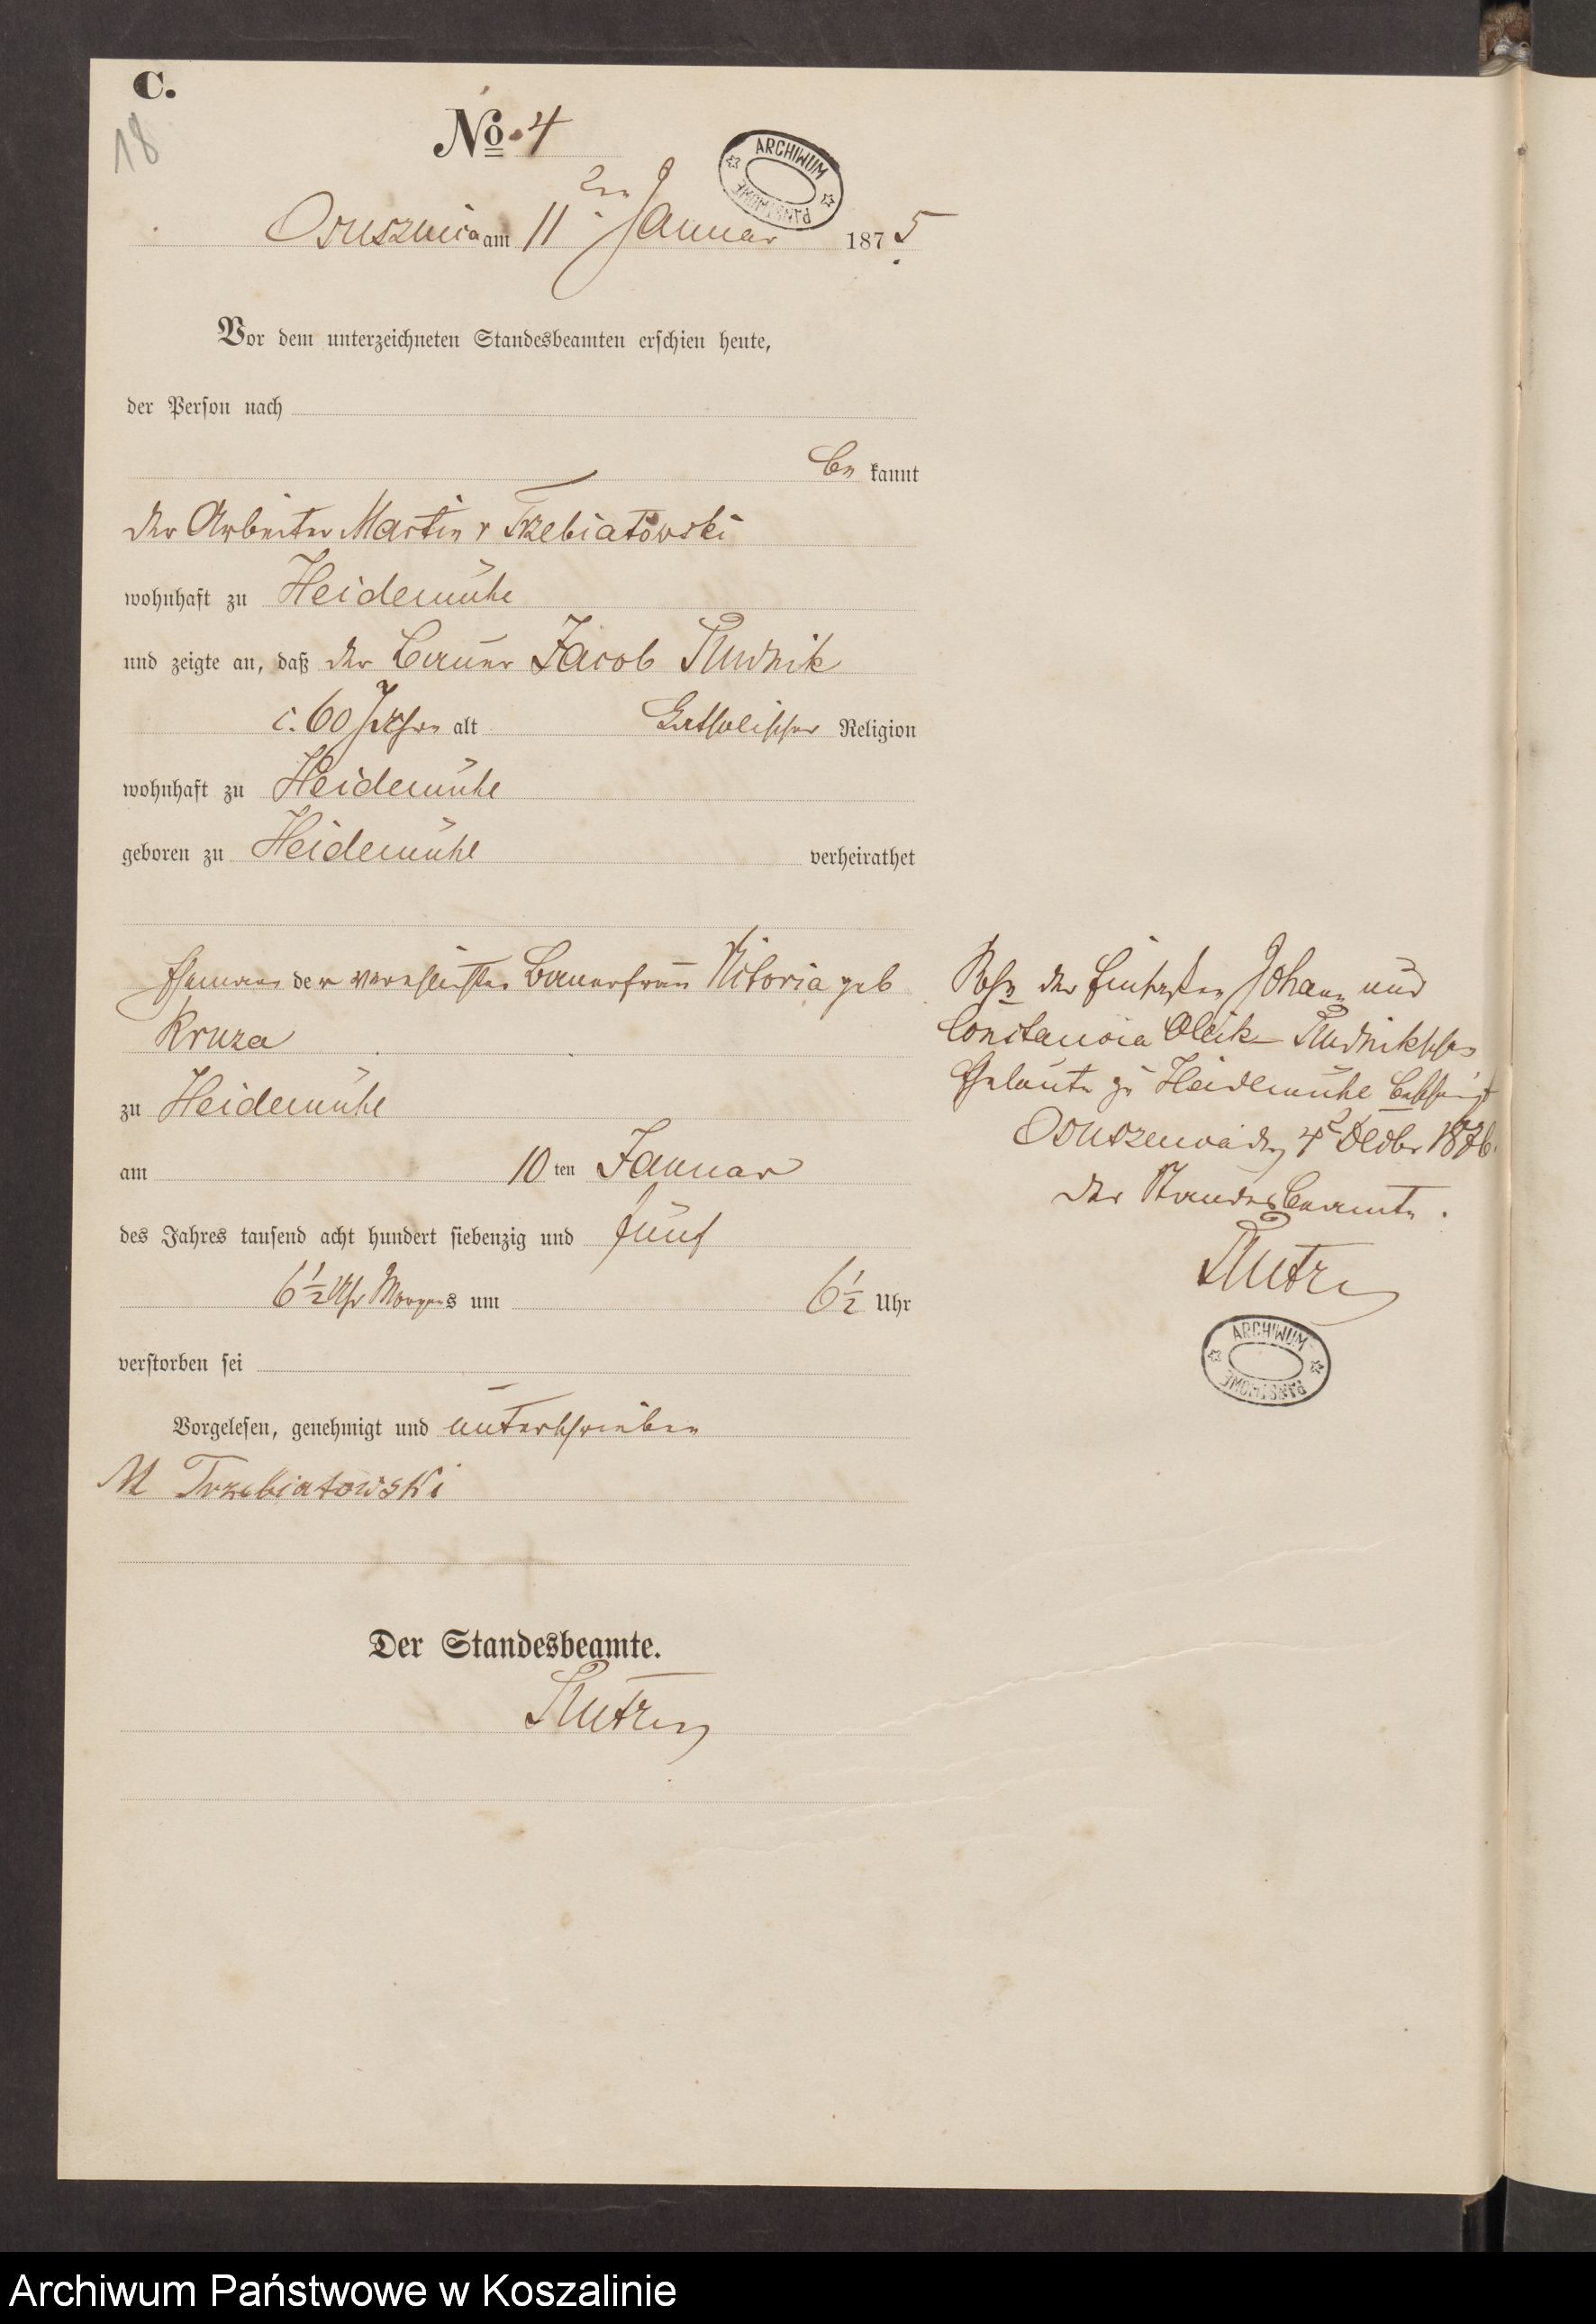 C.
18
No. 4
ARCHIWUM PAŃSTWOWE
Osusznica am 11 ten Januar 1875
Vor dem unterzeichneten Standesbeamten erschien heute,
der Person nach
be kannt
der Arbeiter Martin v Trzebiatowski
wohnhaft zu Heidemühe
und zeigte an, daß der Bauer Jacob Rudnik
c. 60 Jahre alt Catholischer Religion
wohnhaft zu Heidemühe
geboren zu Heidemühl verheirathet
Ehemann der Bauerfrau Vitoria geb
Kruza
zu Heidemühl
am 10 ten Januar
des Jahres tausend acht hundert siebenzig und fünf
6 1/2 Uhr Morgens um 6 1/2 Uhr
verstorben sei
Vorgelesen, genehmigt und unterschrieben
M Trzebiatowski
Der Standesbeamte.
Sohn der Johann und
Constancia Rudnikschen
Eheleute zu Heidemühe
den 4 1876
der Standesbeamte.
ARCHIWUM PAŃSTWOWE
Archiwum Państwowe w Koszalinie